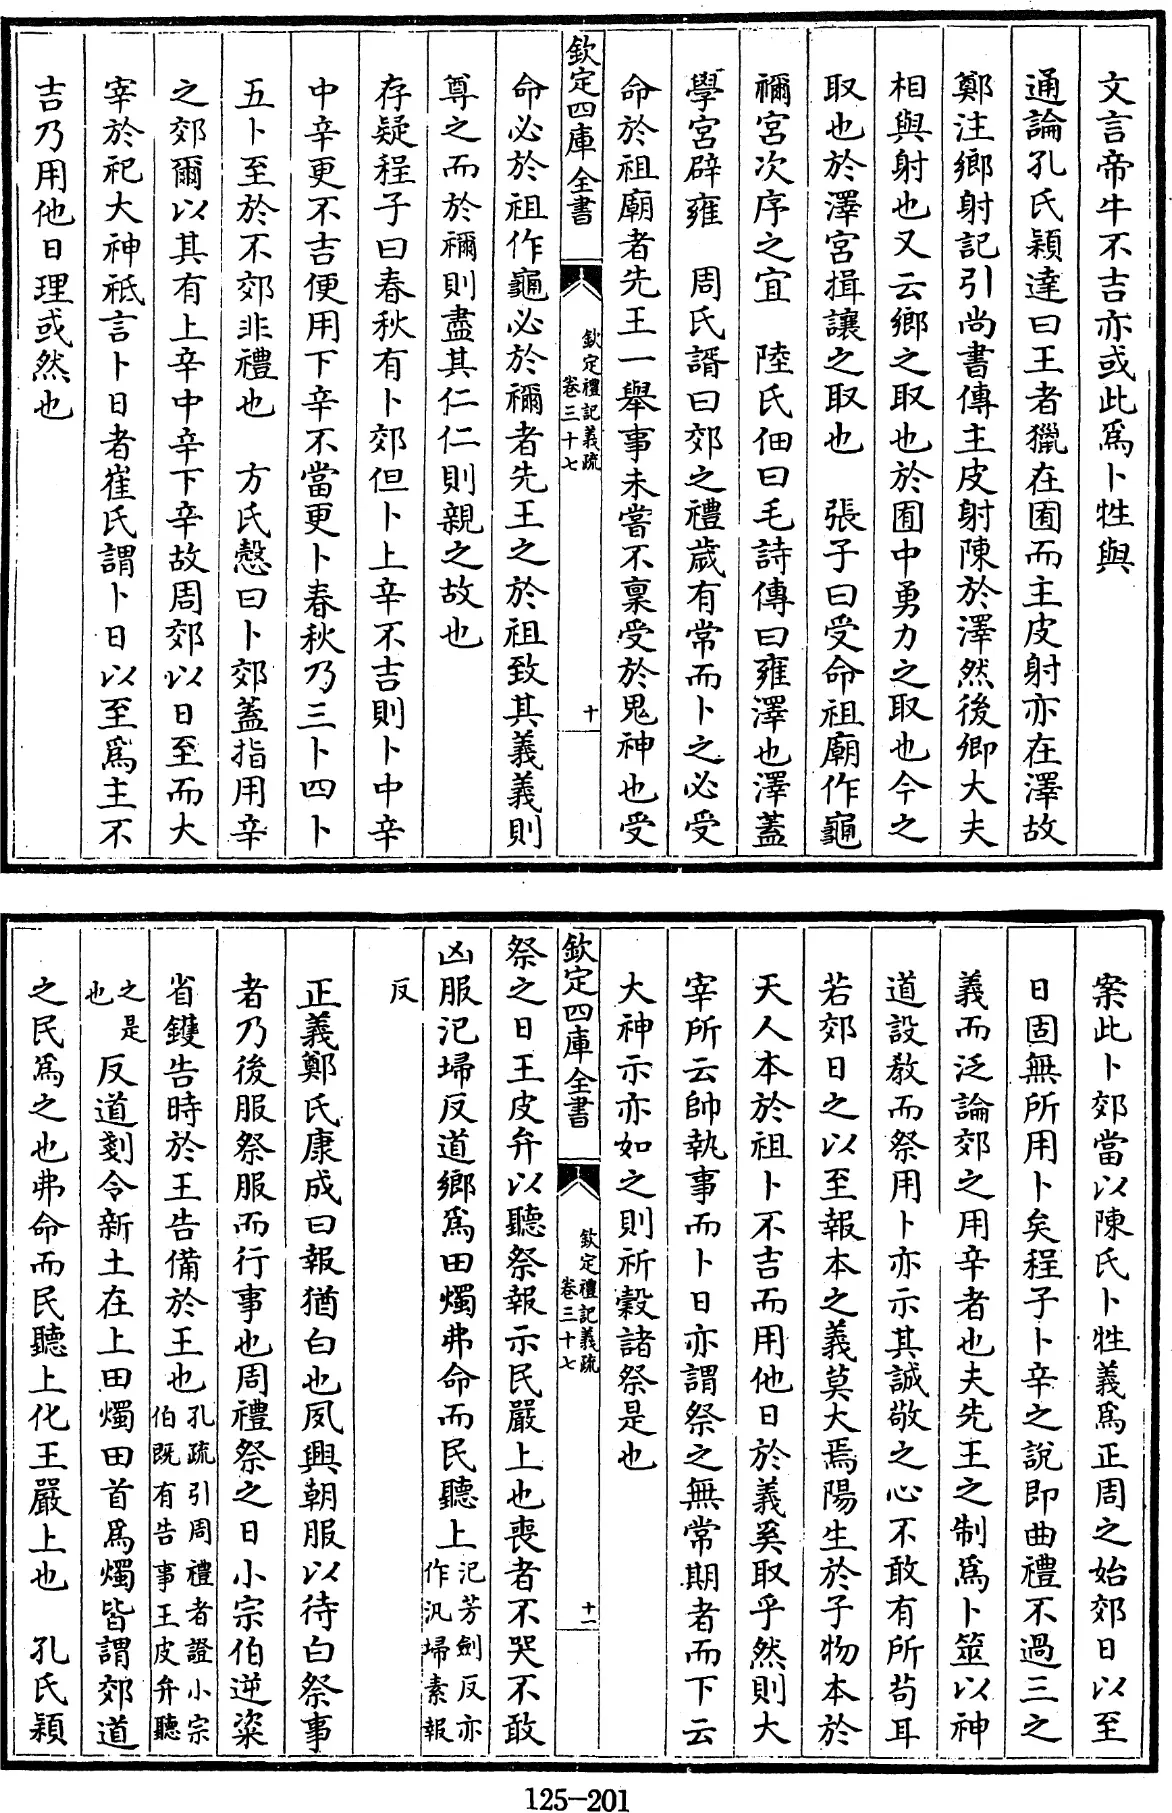 文言帝牛不吉亦或此爲卜牲與
通論孔氏穎達曰王者獵在囿而主皮射亦在澤故
鄭注鄉射記引尚書傳主皮射陳於澤然後卿大夫
相與射也又云鄉之取也於囿中勇力之取也今之
取也於澤宫揖讓之取也　張子曰受命祖廟作龜
禰宫次序之宜　陸氏佃曰毛詩傳曰雍澤也澤蓋
學宫辟雍　周氏諝曰郊之禮歲有常而卜之必受
命於祖廟者先王一舉事未嘗不稟受於鬼神也受
欽定四庫全書
欽定禮記義疏
卷三十七
十
命必於祖作龜必於禰者先王之於祖致其義義則
尊之而於禰則盡其仁仁則親之故也
存疑程子曰春秋有卜郊但卜上辛不吉則卜中辛
中辛更不吉便用下辛不當更卜春秋乃三卜四卜
五卜至於不郊非禮也　方氏慤曰卜郊蓋指用辛
之郊爾以其有上辛中辛下辛故周郊以日至而大
宰於祀大神祗言卜日者崔氏謂卜日以至爲主不
吉乃用他日理或然也
案此卜郊當以陳氏卜牲義爲正周之始郊日以至
日固無所用卜矣程子卜辛之說即曲禮不過三之
義而泛論郊之用辛者也夫先王之制爲卜筮以神
道設教而祭用卜亦示其誠敬之心不敢有所苟耳
若郊日之以至報本之義莫大焉陽生於子物本於
天人本於祖卜不吉而用他日於義奚取乎然則大
宰所云帥執事而卜日亦謂祭之無常期者而下云
大神示亦如之則祈穀諸祭是也
欽定四庫全書
欽定禮記義疏
卷三十七
十一
祭之日王皮弁以聽祭報示民嚴上也喪者不哭不敢
凶服汜埽反道鄉爲田燭弗命而民聽上汜芳劍反亦
作汎埽素報
反
正義鄭氏康成曰報猶白也夙興朝服以待白祭事
者乃後服祭服而行事也周禮祭之日小宗伯逆粢
省鑊告時於王告備於王也孔疏引周禮者證小宗
伯既有告事王皮弁聽
之是
也　反道剗令新土在上田燭田首爲燭皆謂郊道
之民爲之也弗命而民聽上化王嚴上也　孔氏穎
125-201